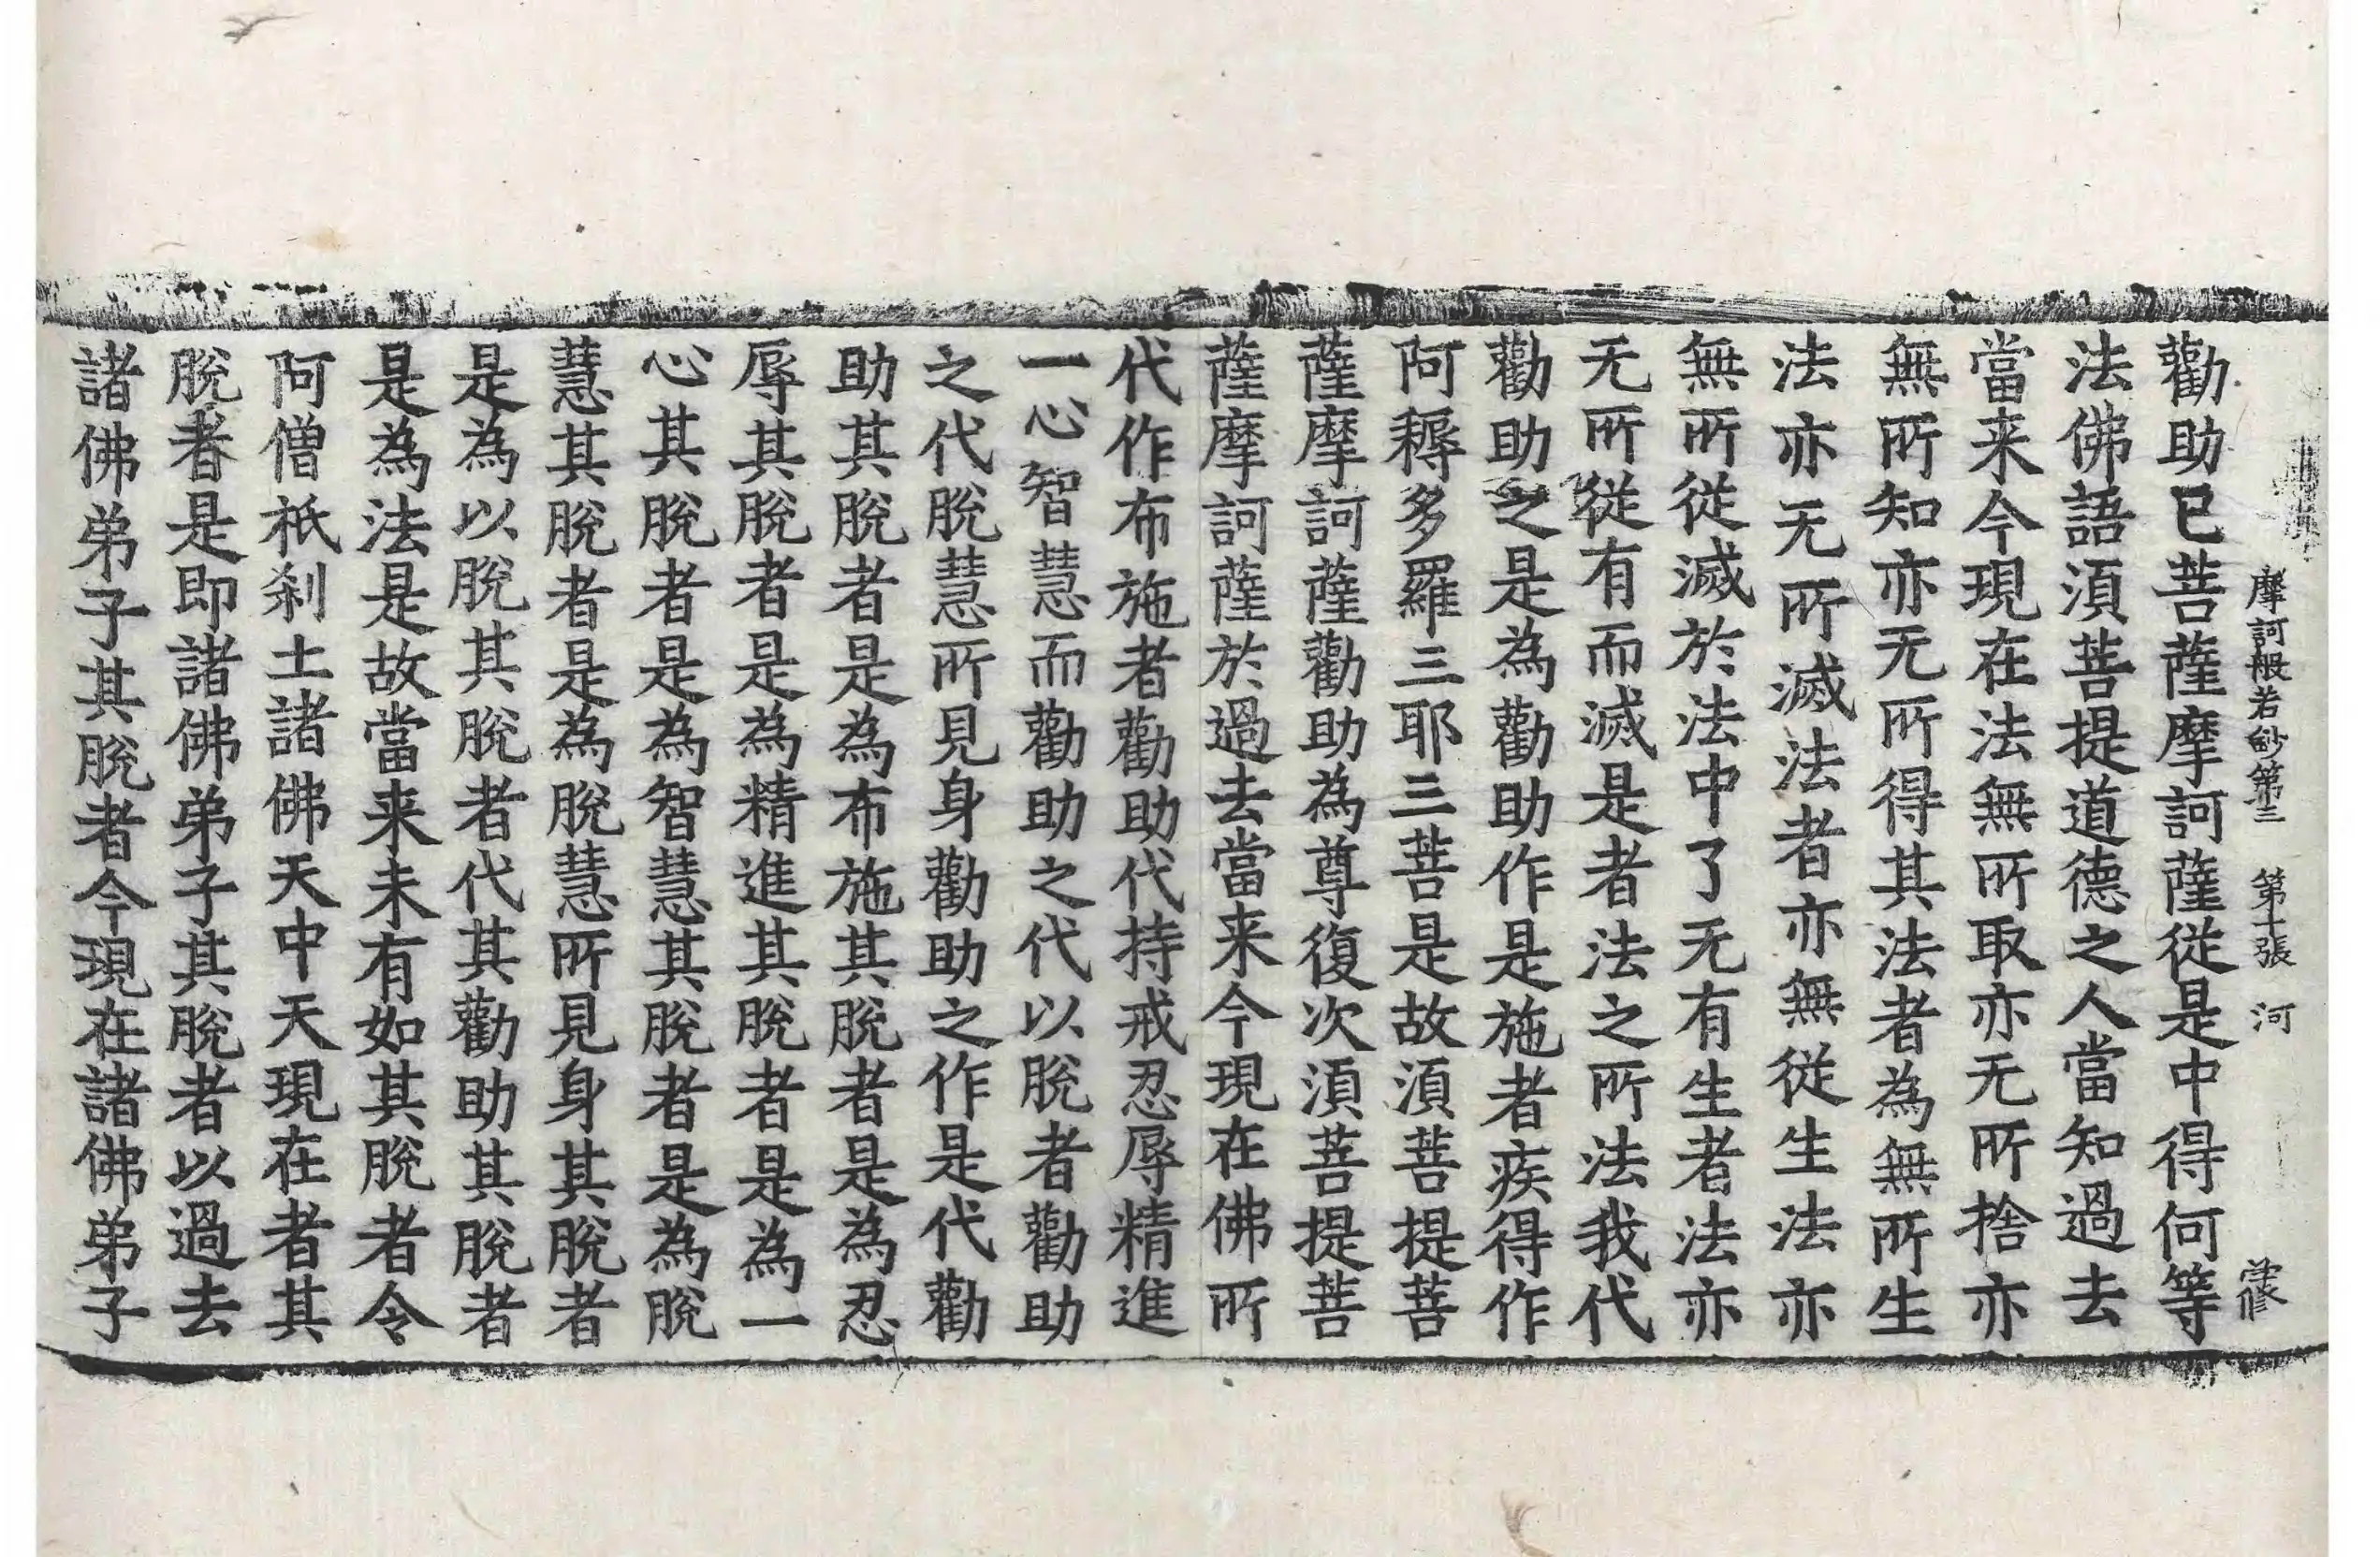 摩訶般若鈔第三 第十張 河
勸助已菩薩摩訶薩從是中得何等
法佛語湏菩提道德之人當知過去
當来今現在法無所取亦无所捨亦
無所知亦无所得其法者為無所生
法亦无所滅法者亦無從生法亦
無所從滅於法中了无有生者法亦
无所從有而滅是者法之所法我代
勸助之是為勸助作是施者疾得作
阿耨多羅三耶三菩是故湏菩提菩
薩摩訶薩勸助為尊復次湏菩提菩
薩摩訶薩於過去當来今現在佛所
代作布施者勸助代持戒忍辱精進
一心智慧而勸助之代以脫者勸助
之代脫慧所見身勸助之作是代勸
助其脫者是為布施其脫者是為忍
辱其脫者是為精進其脫者是為一
心其脫者是為智慧其脫者是為脫
慧其脫者是為脫慧所見身其脫者
是為以脫其脫者代其勸助其脫者
是為法是故當来未有如其脫者令
阿僧祇剎土諸佛天中天現在者其
脫者是即諸佛弟子其脫者以過去
諸佛弟子其脫者今現在諸佛弟子